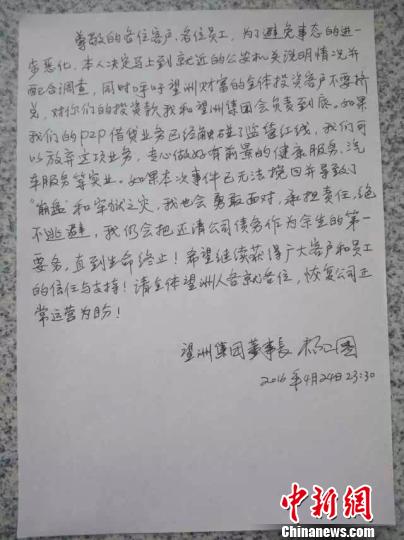 尊敬的各位客户、各位员工，为了避免事态的进
步恶化，本人决定马上到就近的公安机关说明情况并
配合调查，同时呼吁望洲财富的全体投资客户不要挤
兑，对你们的投资款我和望洲集团会负责到底。如果
我们的P2P借贷业务已经触碰了监管红线，我们可
以放弃这项业务，专心做好有前景的健康服务、汽
车服务等实业。如果本次事件已无法挽回并导致了
“崩盘”和牢狱之灾，我也会勇敢面对，承担责任，绝
不逃避，我仍会把还清公司债务作为余生的第一
要务，直到生命终止！希望继续获得广大客户和员工
的信任与支持！请全体望洲人各就各位，恢复公司正
常运营为盼！
望洲集团董事长 杨卫国
2016年4月24日23:30
中新网
Chinanews.com